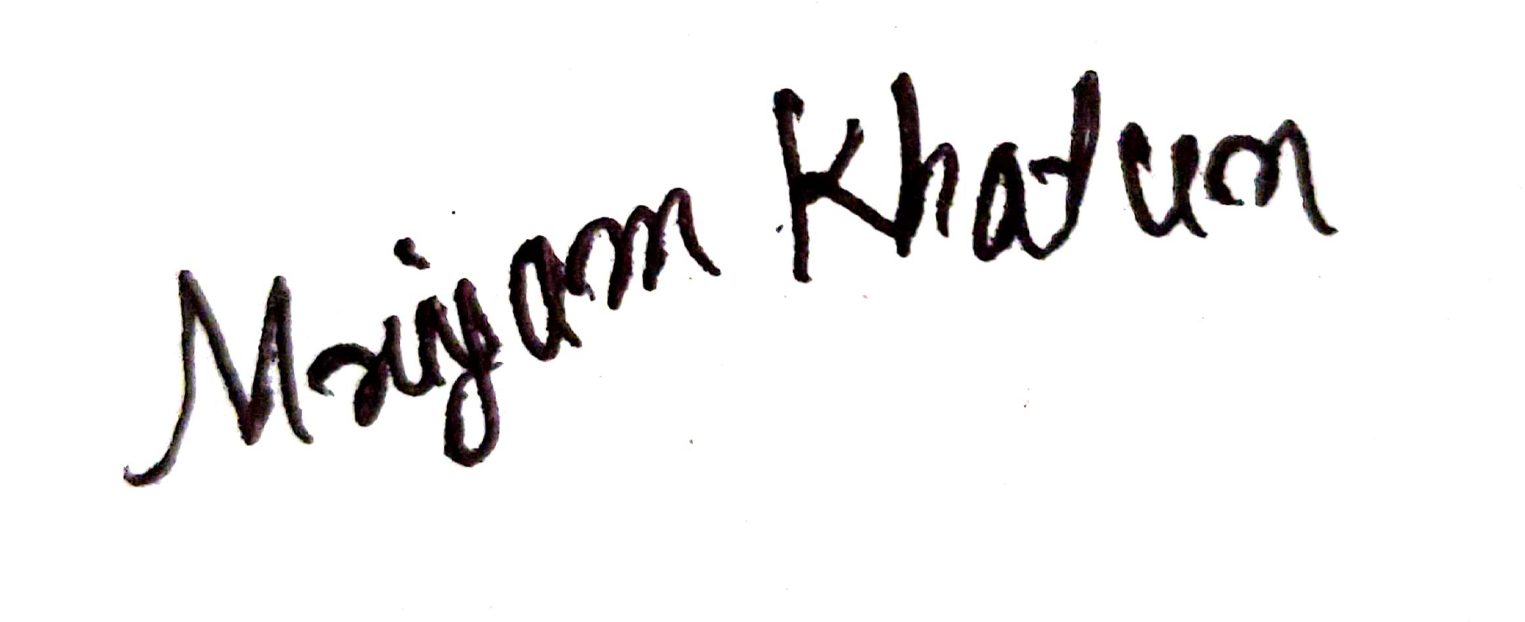 Mriyam Khatun